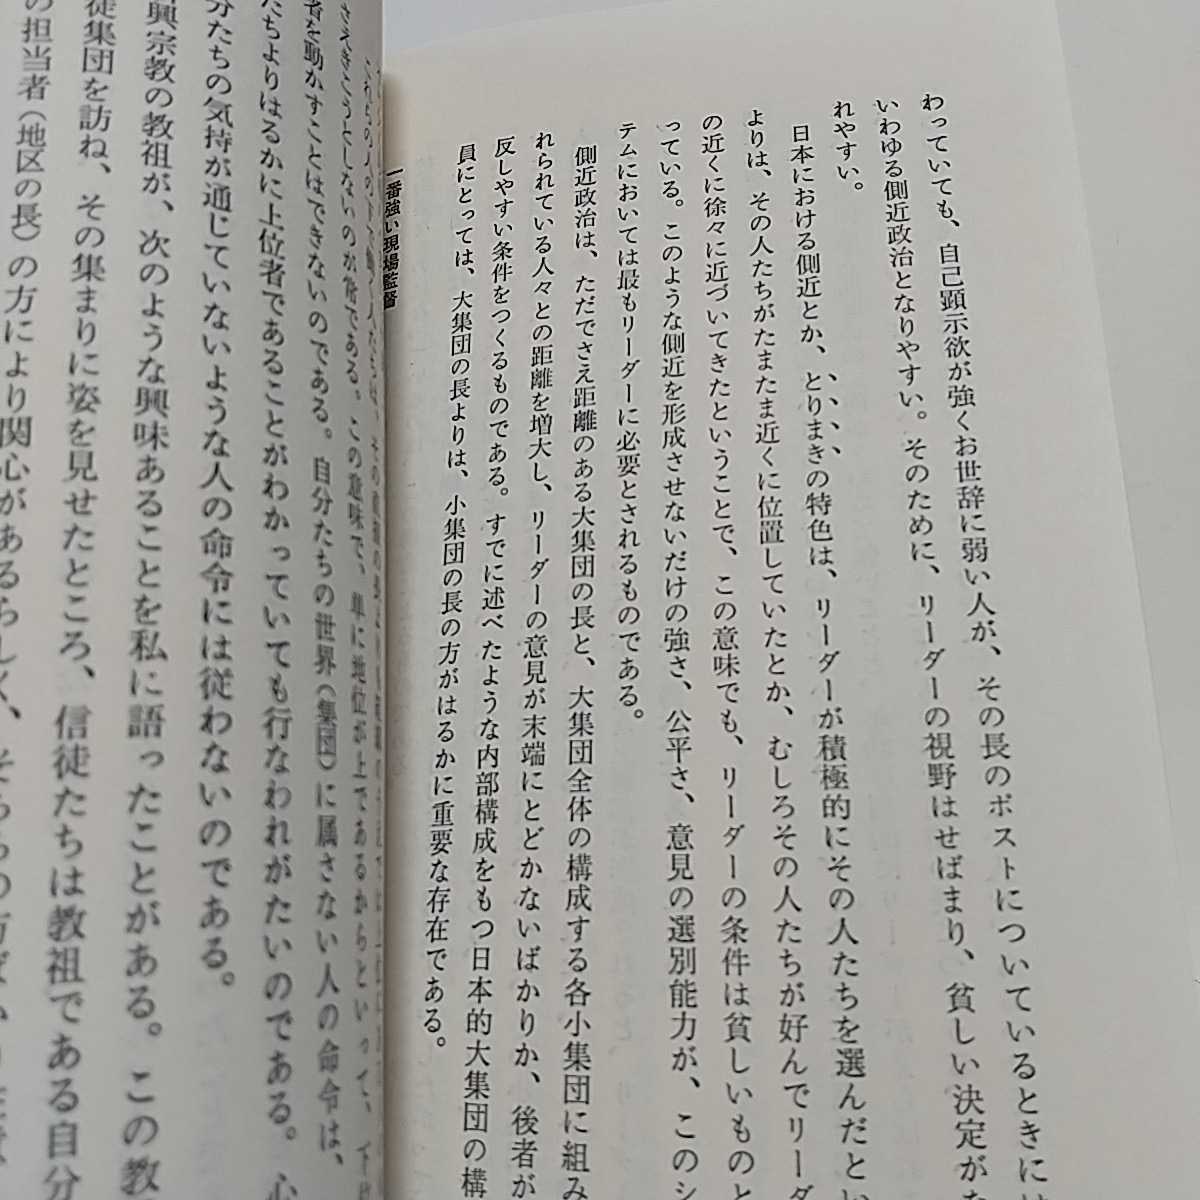 わっていても、自己顕示欲が強くお世辞に弱い人が、その長のポストについているときに
いわゆる側近政治となりやすい。そのために、リーダーの視野はせばまり、貧しい決定が
れやすい。
日本における側近とか、とりまきの特色は、リーダーが積極的にその人たちを選んだとい
よりは、その人たちがたまたま近くに位置していたとか、むしろその人たちが好んでリーダ
の近くに徐々に近づいてきたということで、この意味でも、リーダーの条件は貧しいものと
っている。このような側近を形成させないだけの強さ、公平さ、意見の選別能力が、このシ
テムにおいては最もリーダーに必要とされるものである。
側近政治は、ただでさえ距離のある大集団の長と、大集団全体の構成する各小集団に組み
れられている人々との距離を増大し、リーダーの意見が末端にとどかないばかりか、後者が
反しやすい条件をつくるものである。すでに述べたような内部構成をもつ日本的大集団の構
員にとっては、大集団の長よりは、小集団の長の方がはるかに重要な存在である。
一番強い現場監督
さえきこうとしないのが常である。この意味で、単に地位が上であるからといって、下
者を動かすことはできないのである。自分たちの世界（集団）に属さない人の命令は、
たちよりはるかに上位者であることがわかっていても行なわれがたいのである。心
分たちの気持が通じていないような人の命令には従わないのである。
興宗教の教祖が、次のような興味あることを私に語ったことがある。この教
徒集団を訪ね、その集まりに姿を見せたところ、信徒たちは教祖である自分
の担当者（地区の長）の方により関心があるらしく、そちらの方ばかり